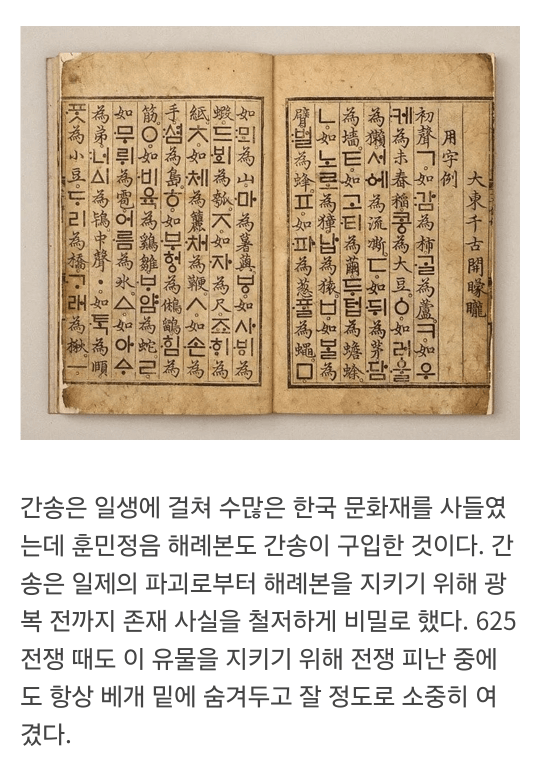 大東千古開矇矓
用字例
初聲ㄱ如감為柿ᄀᆞᆯ為蘆ㅋ如우
케為未舂稻콩為大豆ㆁ如러울
為獺서에為流凘ㄷ如뒤為茅담
為墙ㅌ如고티為繭두텁為蟾蜍
ㄴ如노로為獐납為猿ㅂ如ᄇᆞᆯ為
臂벌為蜂ㅍ如파為葱ᄑᆞᆯ為蠅ㅁ
如뫼為山마為薯藇ㅸ如사ᄫᅵ為
蝦드ᄫᅴ為瓠ㅈ如자為尺죠ᄒᆡ為
紙ㅊ如체為簏채為鞭ㅅ如손為
手셤為島ㅎ如부헝為鵂鶹힘為
筋ㅇ如비육為鷄雛ᄇᆞ얌為蛇ㄹ
如무뤼為雹어름為氷ㅿ如아ᅀᆞ
為弟너ᅀᅵ為鴇中聲ㆍ如ᄐᆞᆨ為頤
ᄑᆞᆺ為小豆ᄃᆞ리為橋ᄀᆞ래為楸
간송은 일생에 걸쳐 수많은 한국 문화재를 사들였
는데 훈민정음 해례본도 간송이 구입한 것이다. 간
송은 일제의 파괴로부터 해례본을 지키기 위해 광
복 전까지 존재 사실을 철저하게 비밀로 했다. 625
전쟁 때도 이 유물을 지키기 위해 전쟁 피난 중에
도 항상 베개 밑에 숨겨두고 잘 정도로 소중히 여
겼다.